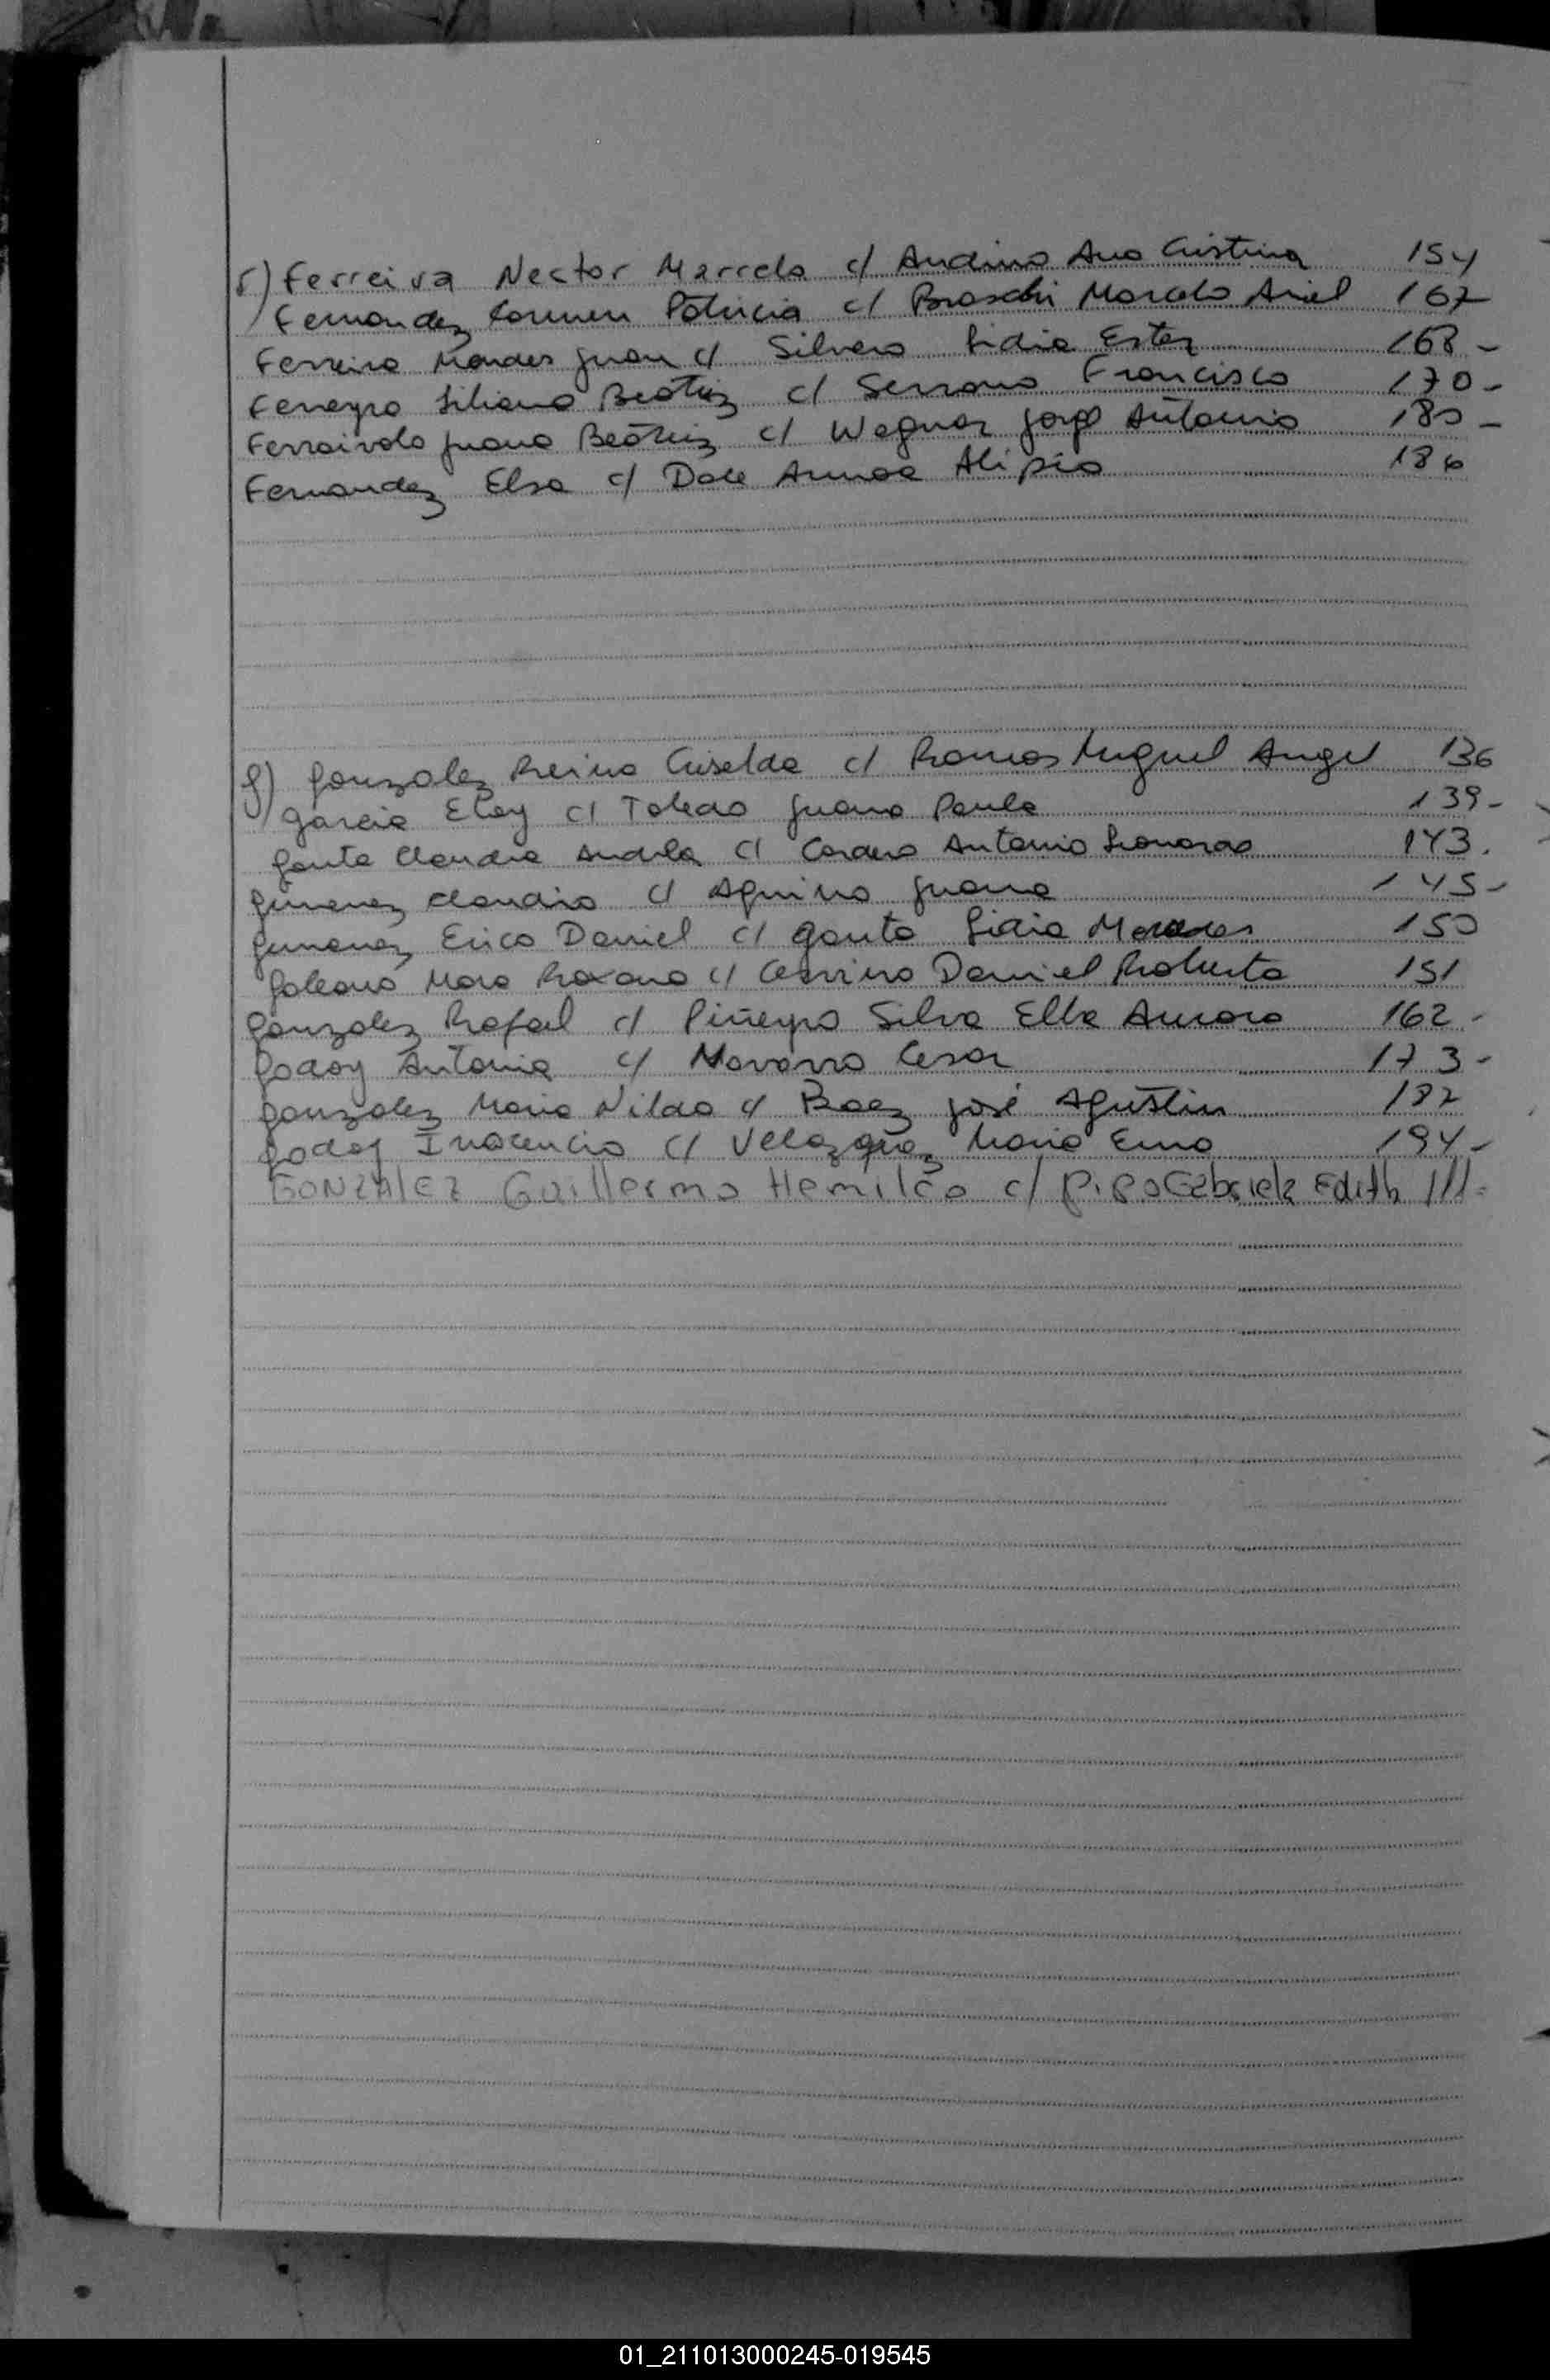 f) Ferreira Nestor Marcelo c/ Andino Ana Cristina 154
Fernandez Carmen Patricia c/ Braschi Marcelo Ariel 167
Ferreira Mendes Juan c/ Silvero Lidia Ester 168 -
Ferreyra Liliana Beatriz c/ Serrano Francisco 170 -
Juana Beatriz c/ Wagner Jorge Antonio 180 -
Fernandez Elsa c/ Alipio 186
g) Gonzalez Reina Griselda c/ Ramos Miguel Angel 136
Garcia Eloy c/ Toledo Juana Paula 139 -
Gauto Claudia c/ Cordero Antonio Leonardo 143.
Gimenez Claudio c/ Aquino Juana 145 -
Gimenez Erico Daniel c/ Gauto Lidia Mercedes 150
Galeano Mara Roxana c/ Daniel Roberto 151
Gonzalez Rafael c/ Piñeyro Silva Elba Aurora 162 -
Godoy Antonia c/ Navarro Cesar 173 -
Gonzalez Maria Nilda c/ Baez José Agustin 187
Godoy Inocencio c/ Velazquez Maria Ema 194 -
GONZALEZ Guillermo Hemilio c/ Gabriela Edith 111 -
01_211013000245-019545